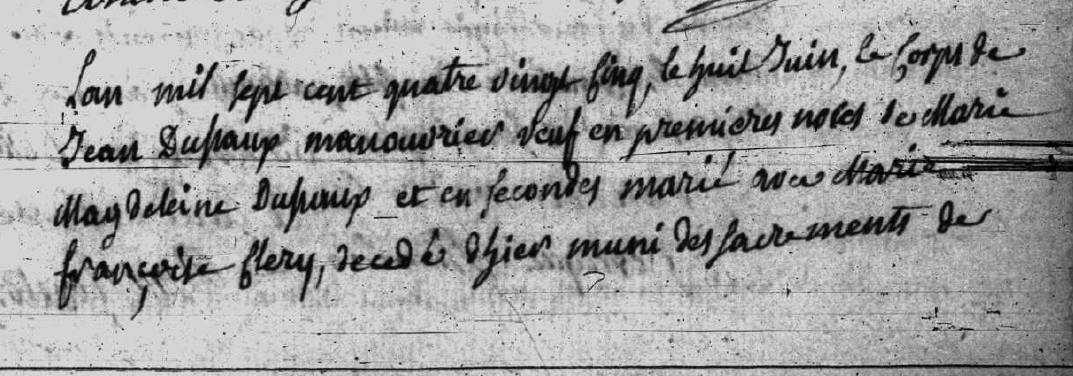 Lan mil sept cent quatre vingt cinq, le huit Juin, le Corps de
Jean Dupaup manouvrier veuf en premieres noces de Marie
Magdeleine Dupaup et en secondes marié avec Marie
françoise flery, decedé d'hier muni des sacrements de